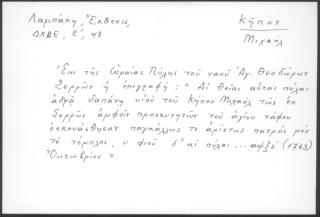 Λαμπάκη, Ἔκθεσις, Κῆπος
ΔΧΑΕ, Ε', 48 Μιχαήλ
Ἐπὶ τῆς ὡραίας Πύλης τοῦ ναοῦ Ἁγ. Θεοδώρων
Σερρῶν ἡ ἐπιγραφή: "Αἱ θεῖαι αὗται πύλαι
ἁδρᾷ δαπάνῃ υἱοῦ τοῦ Κήπου Μιχαὴλ τῶν ἐκ
Σερρῶν ἀμφοῖν προσκυνητῶν τοῦ ἁγίου τάφου
ἐσκευάσθησαν παγκάλως τε ἀρίστως πατρὸς μὲν
τὸ τέμπλος, υἱοῦ δ' αἱ πύλαι... αψξγ (1763)
Ὀκτωβρίου